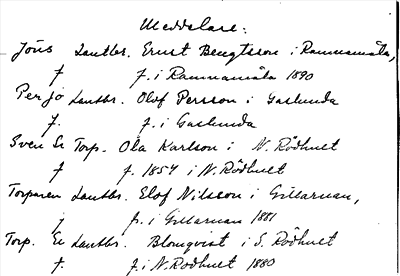 Meddelare:
Jöns Lantbr. Ernst Bengtsson i Ramnamåla,
f. i Ramnamåla 1890
Per jo Lantbr. Olof Persson i Gaslunda
f. i Gaslunda
Sven Er Torp. Ola Karlson i N. Rödhult
f. 1854 i N. Rödhult
Torparen Lantbr. Elof Nilsson i Gillarnan,
f. i Gillarnan 1881
Torp. Er Lantbr. Blomqvist i S. Rödhult
f. i N. Rödhult 1880